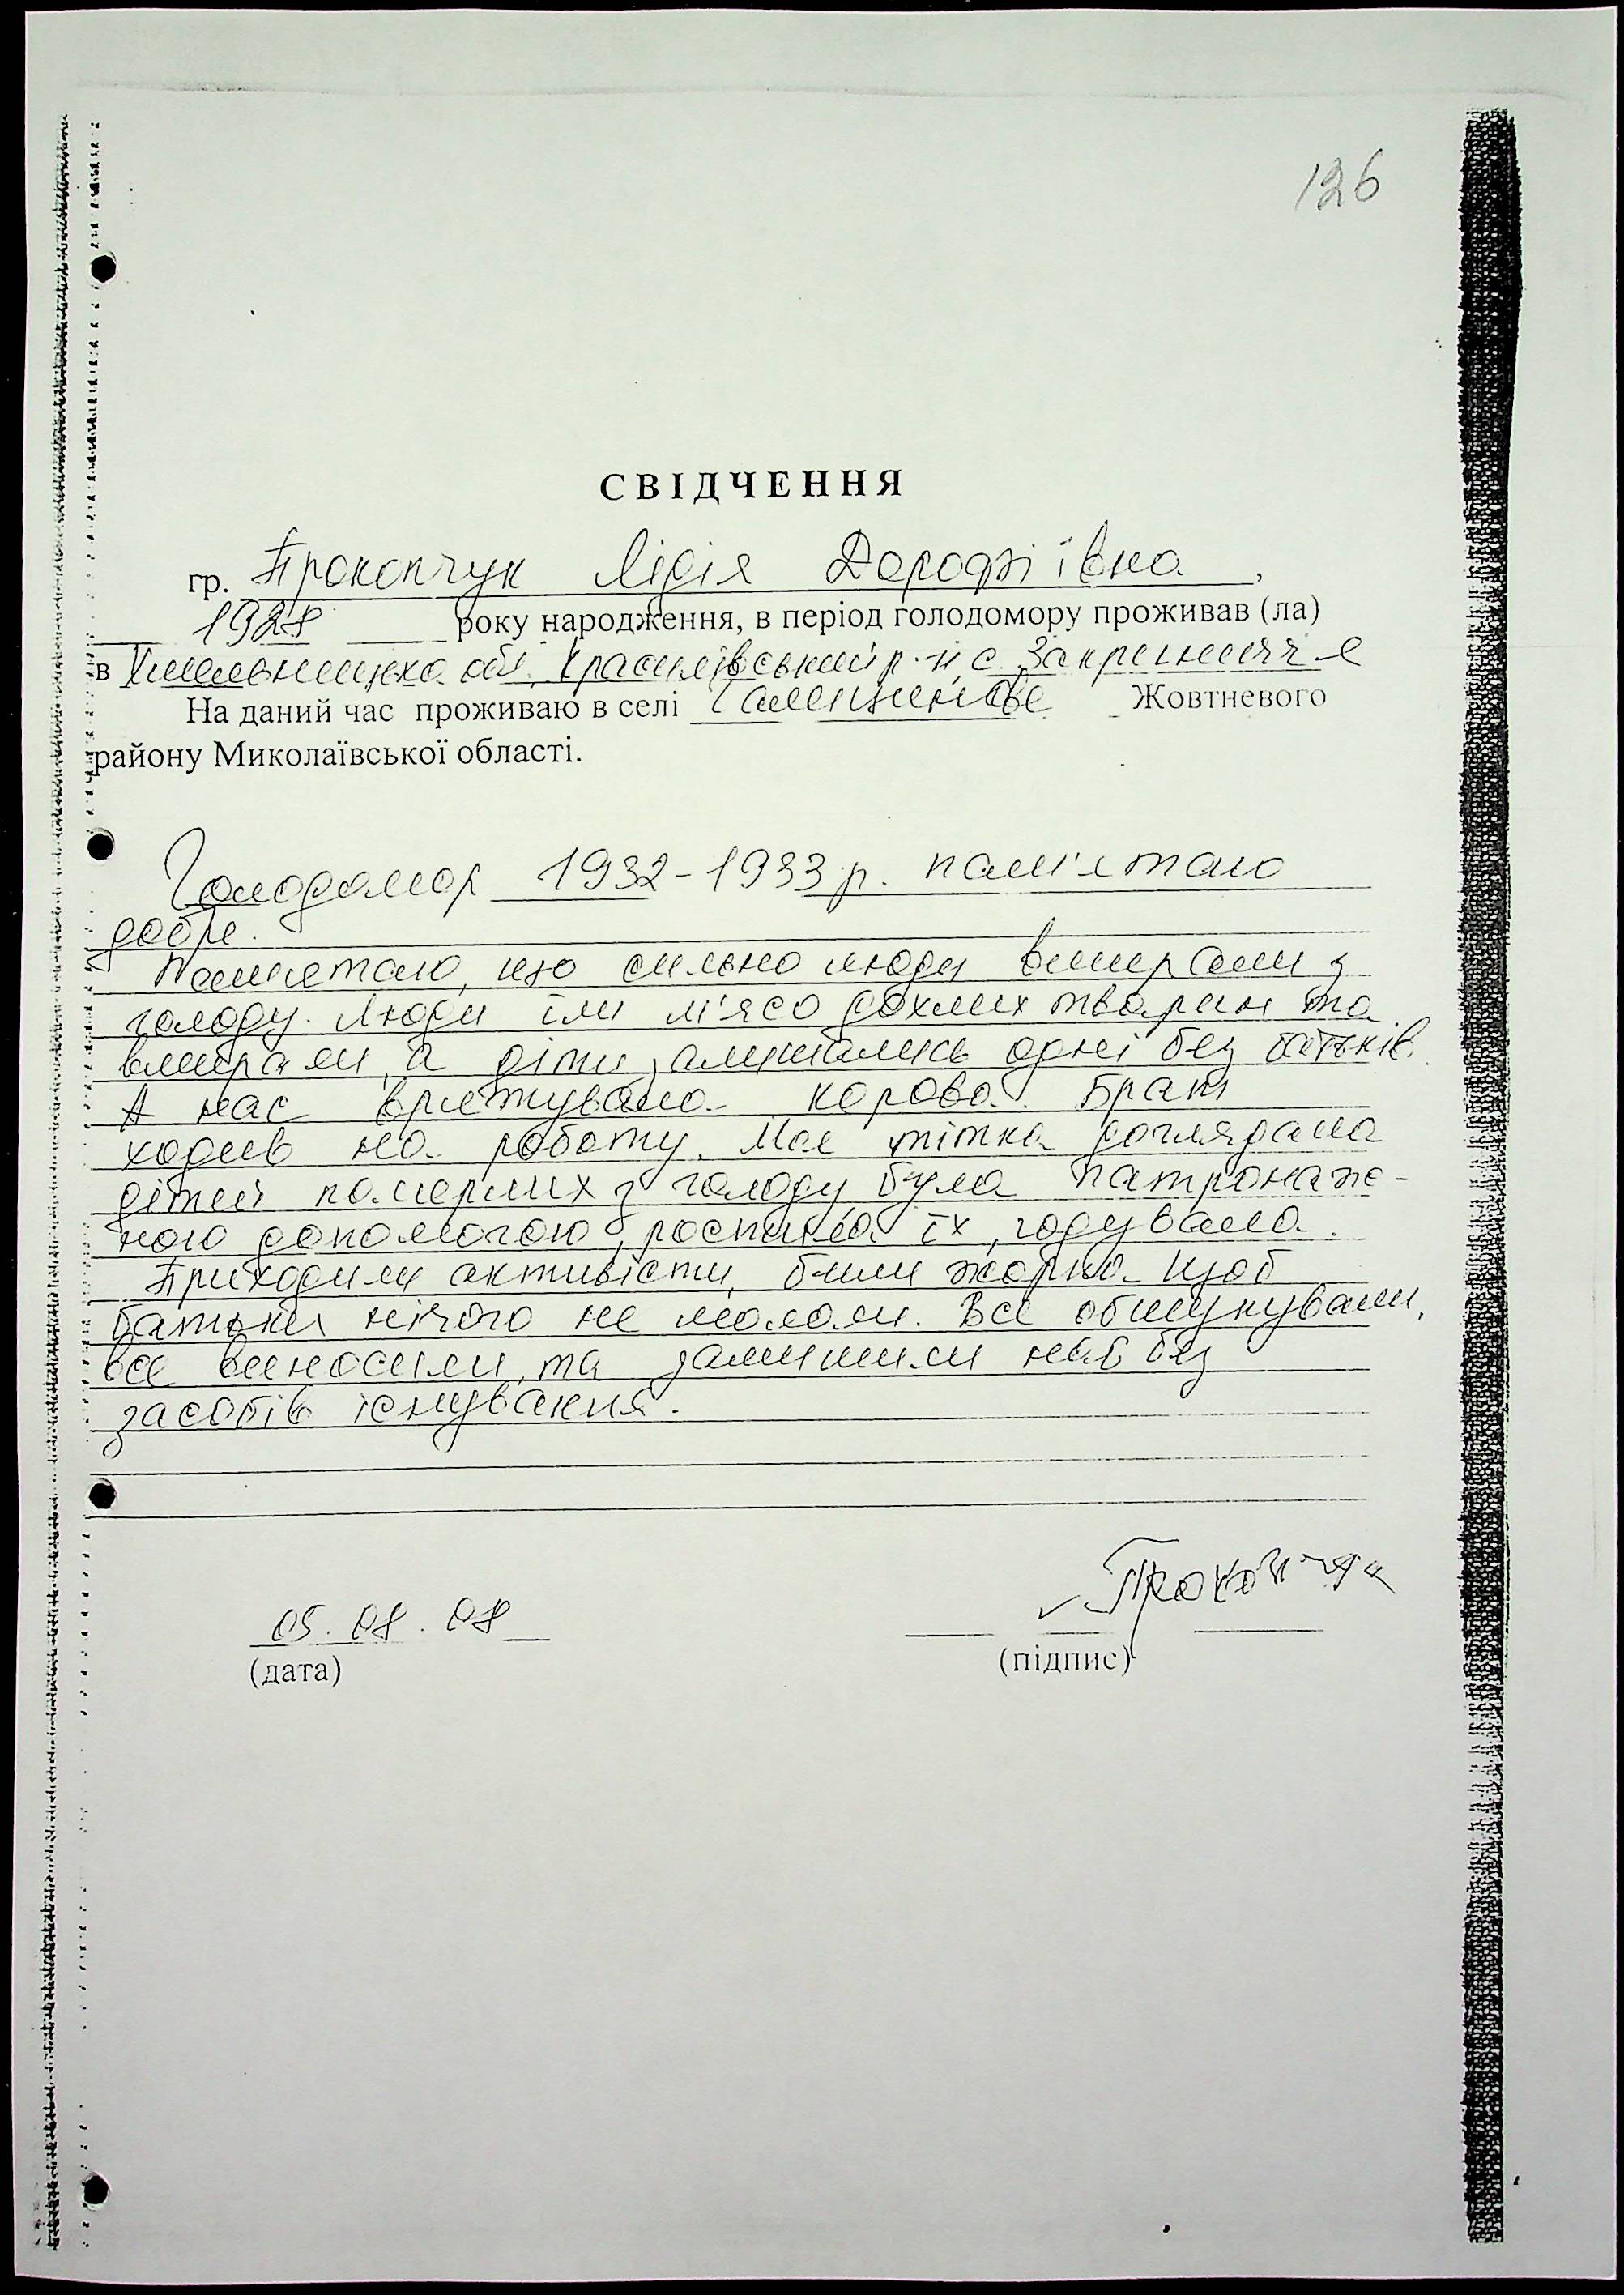 126
СВІДЧЕННЯ
гр. Прокопчук Лідія Дорофіївна,
1928 року народження, в період голодомору проживав (ла)
в Хмельницька обл. Красилівський р-н с. Закриниччя
На даний час проживаю в селі Галицинове Жовтневого
району Миколаївської області.
Голодомор 1932-1933 р. пам'ятаю
добре.
Памietаю, що сильно люди вмирали з
голоду. Люди їли м'ясо дохлих тварин та
вмирали, а діти залишались одні без батьків.
А нас врятувала корова. Брат
ходив на роботу. Моя тітка доглядала
дітей померлих з голоду була патронаж-
ною допомогою, растила їх, годувала.
Приходили активісти, били жорна щоб
батьки нічого не мололи. Все обшукували,
все виносили, та залишили нас без
засобів існування.
05.08.08 Прокопчук
(дата) (підпис)